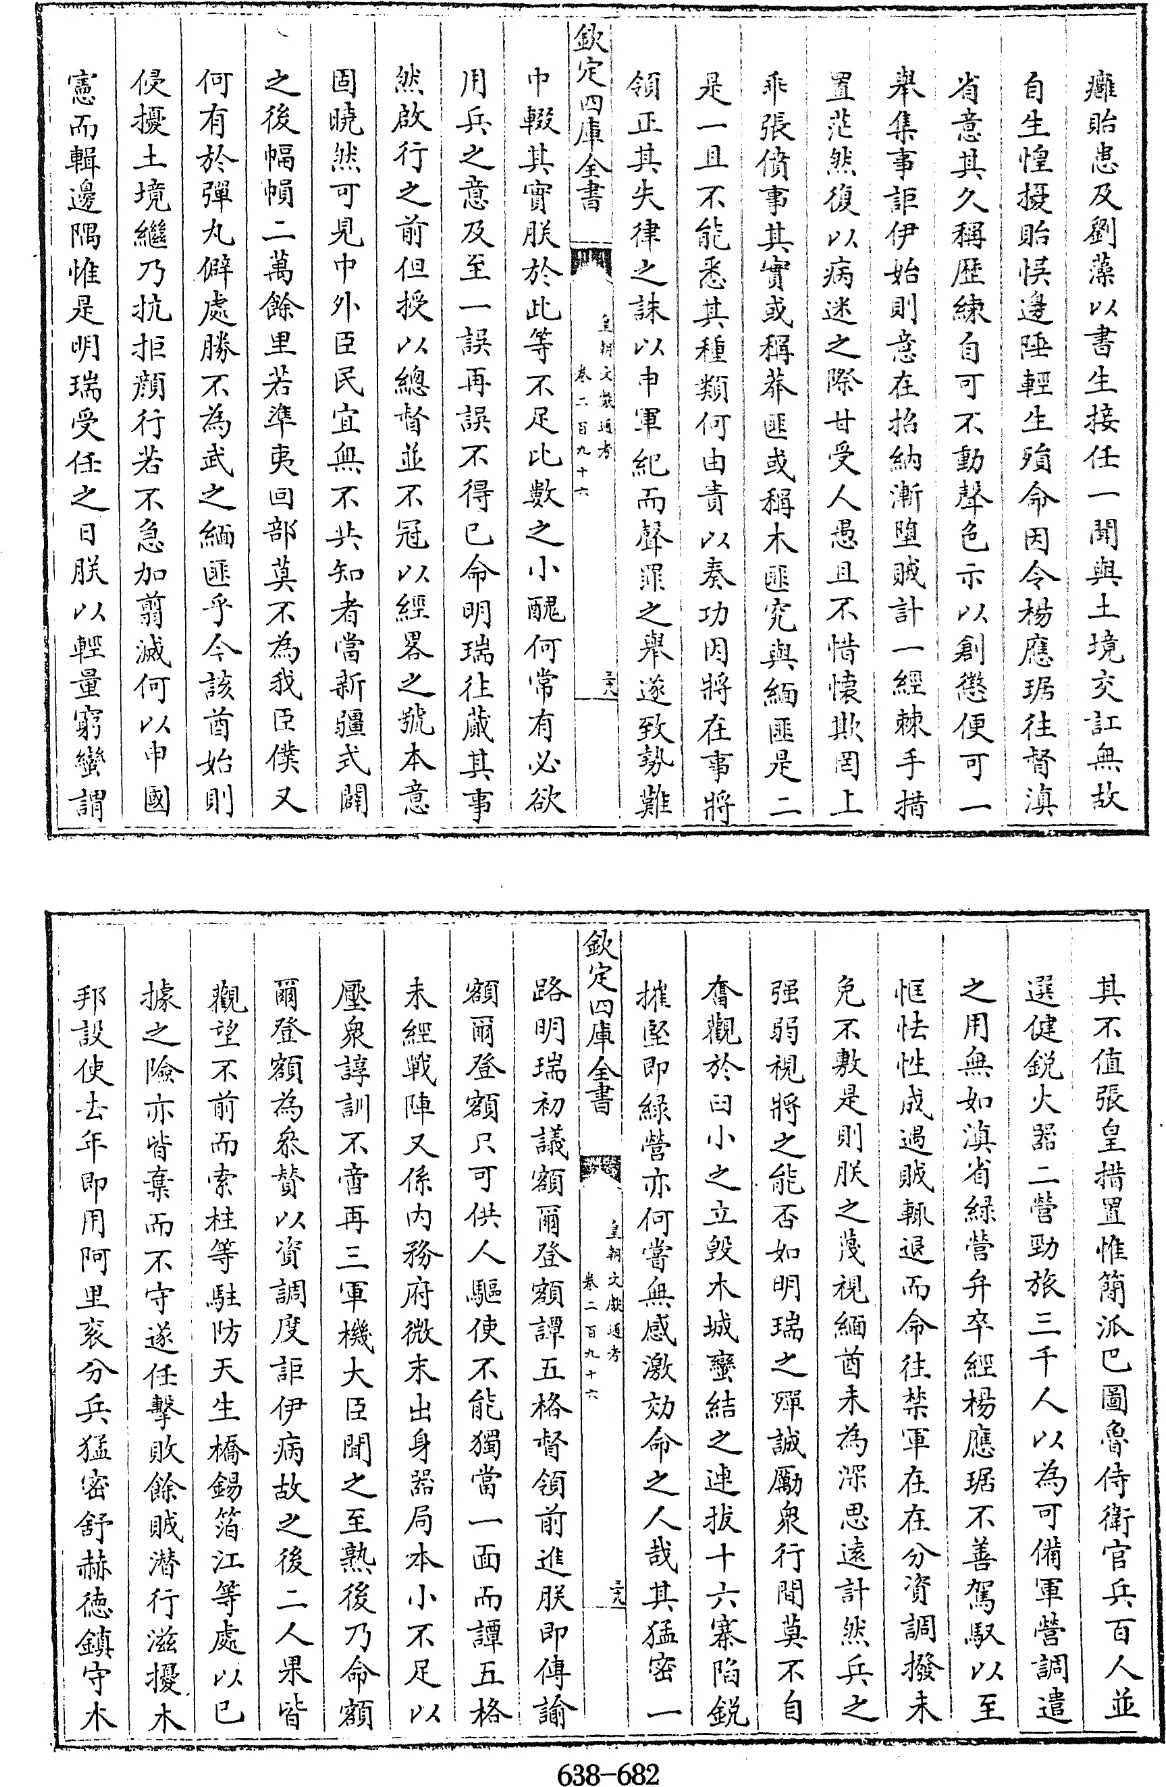 癰貽患及劉藻以書生接任一聞與土境交訌無故
自生惶擾貽悞邊陲輕生殞命因令楊應琚往督滇
省意其久稱歷練自可不動聲色示以創懲便可一
舉集事詎伊始則意在招納漸墮賊計一經棘手措
置茫然復以病迷之際甘受人愚且不惜懐欺罔上
乖張僨事其實或稱莽匪或稱木匪究與緬匪是二
是一且不能悉其種類何由責以奏功因將在事將
領正其失律之誅以申軍紀而聲罪之舉遂致勢難
欽定四庫全書
皇朝文獻通考
卷二百九十六
三九
中輟其實朕於此等不足比數之小醜何常有必欲
用兵之意及至一誤再誤不得已命明瑞往蕆其事
然啟行之前但授以總督並不冠以經畧之號本意
固曉然可見中外臣民宜無不共知者當新疆式闢
之後幅幀二萬餘里若準夷回部莫不為我臣僕又
何有於彈丸僻處勝不為武之緬匪乎今該酋始則
侵擾土境繼乃抗拒顔行若不急加剪滅何以申國
憲而輯邊隅惟是明瑞受任之日朕以輕量窮蠻謂
其不值張皇措置惟簡派巴圖魯侍衛官兵百人並
選健鋭火器二營勁旅三千人以為可備軍營調遣
之用無如滇省緑營弁卒經楊應琚不善駕馭以至
恇怯性成遇賊輒退而命往禁軍在在分資調撥未
免不敷是則朕之蔑視緬酋未為深思遠計然兵之
强弱視將之能否如明瑞之殫誠勵衆行間莫不自
奮觀於臼小之立毁木城蠻結之連拔十六寨陷鋭
摧堅即緑營亦何嘗無感激効命之人哉其猛密一
欽定四庫全書
皇朝文獻通考
卷二百九十六
三九
路明瑞初議額爾登額譚五格督領前進朕即傳諭
額爾登額只可供人驅使不能獨當一面而譚五格
未經戰陣又係内務府微末出身器局本小不足以
壓衆諄訓不啻再三軍機大臣聞之至熟後乃命額
爾登額為叅贊以資調度詎伊病故之後二人果皆
觀望不前而索柱等駐防天生橋錫箔江等處以已
據之險亦皆棄而不守遂任擊敗餘賊潜行滋擾木
邦設使去年即用阿里衮分兵猛密舒赫德鎮守木
638-682